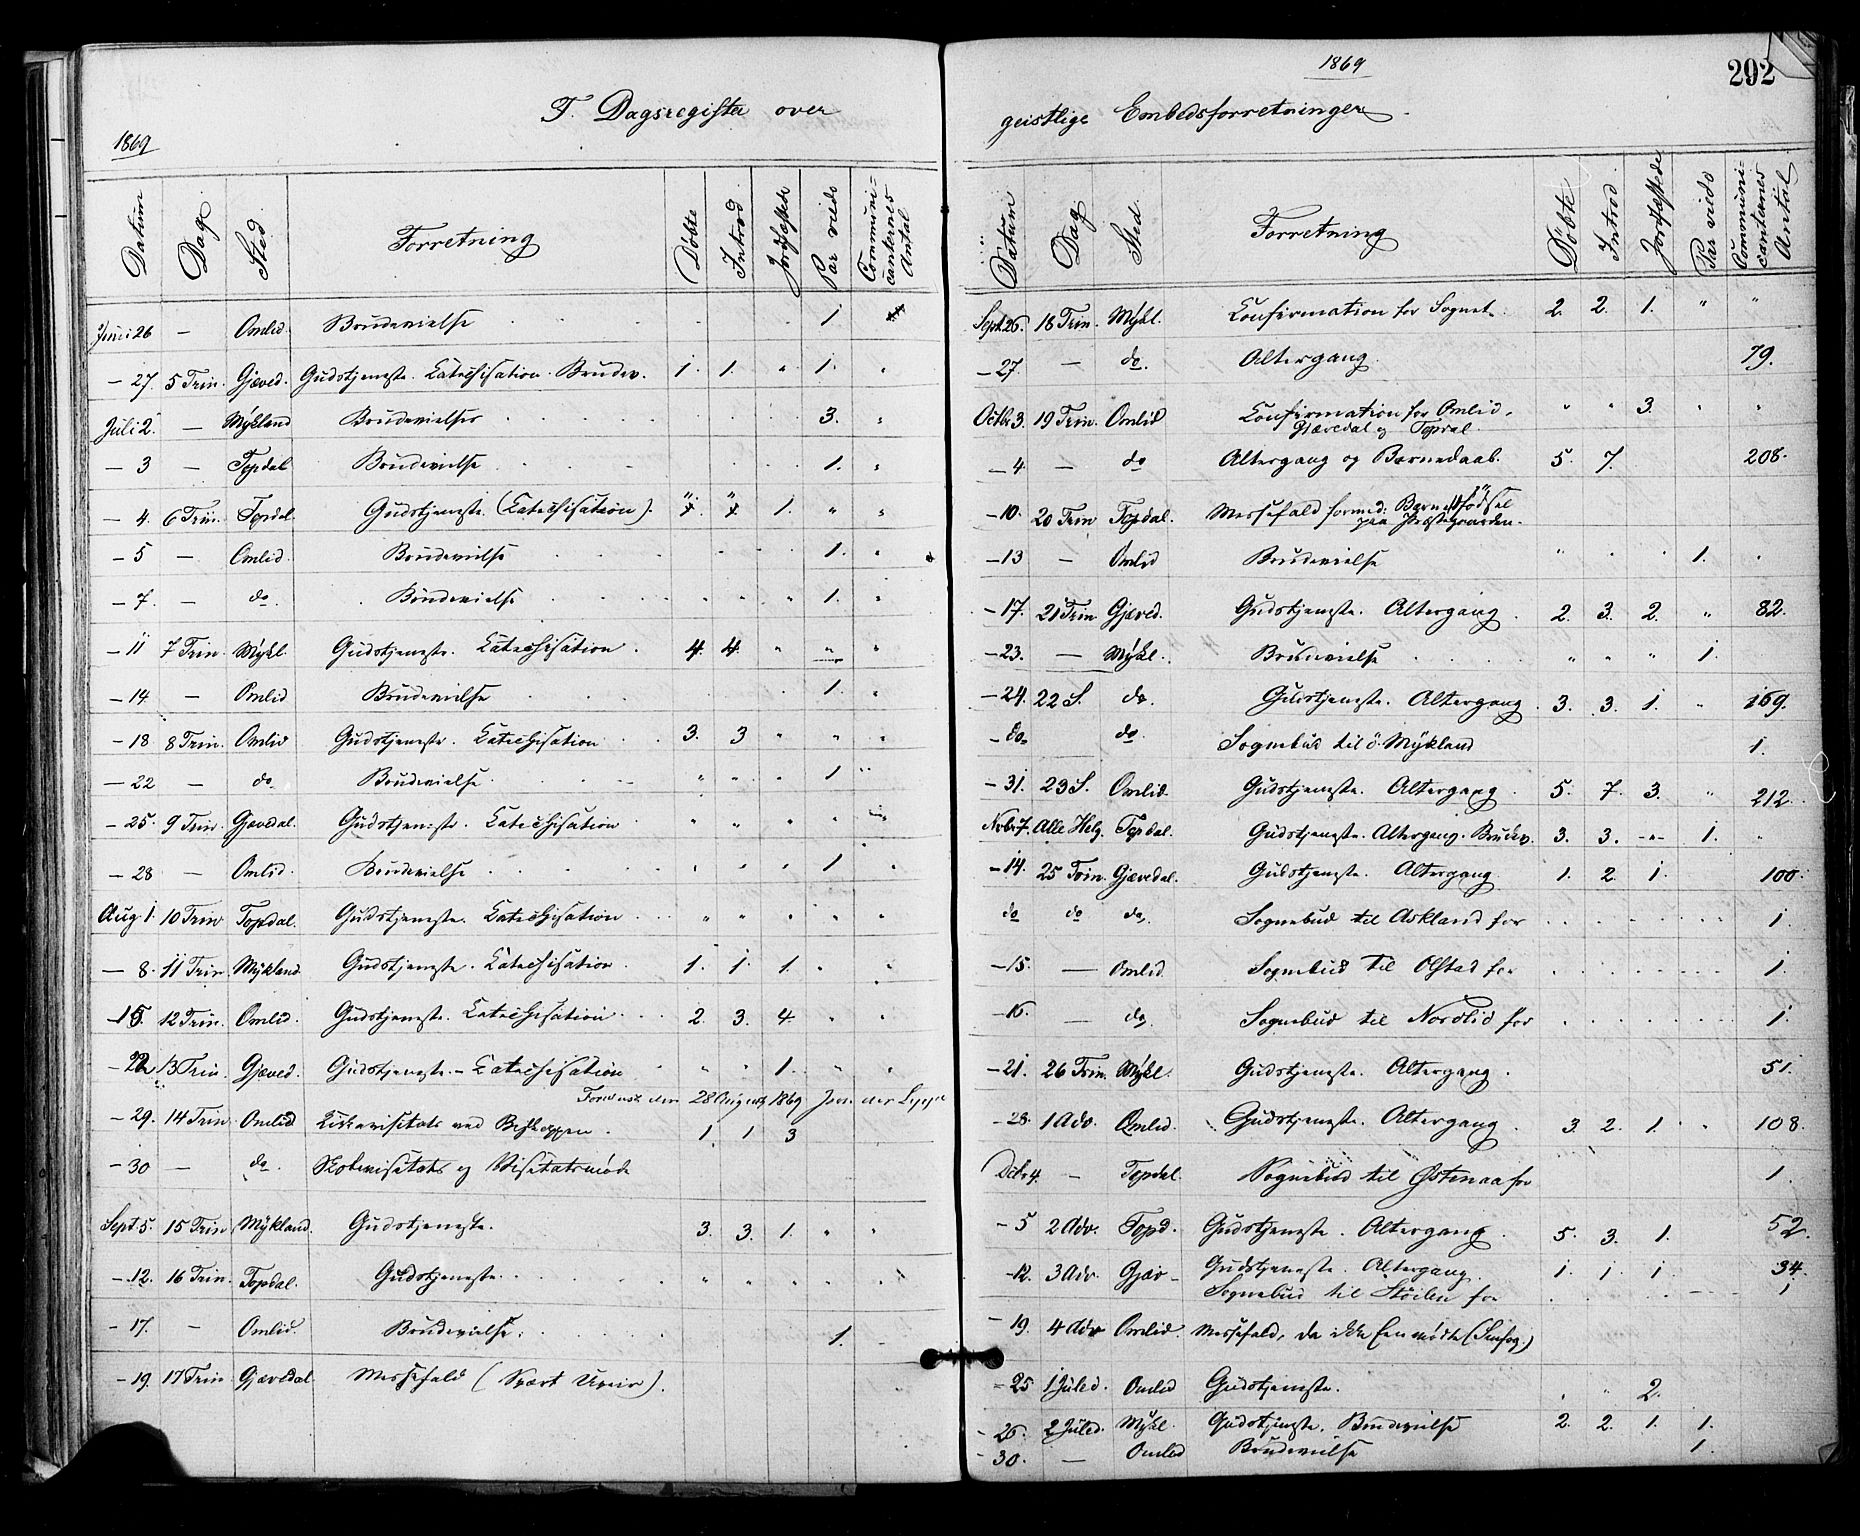 1869
292
F. Dagsregister over
geistlige Embedsforretninger.
1869
Datum Dag Sted Forretning Døbte Introd. Jordfæstede Par viede Communicanternes Antal
Juni 26 — Omlid. Brudevielse 1.
— 27 5 Trin. Gjæved. Gudstjeneste. Catechisation. Brudev. 1. 1. " 1. "
Juli 2. — Mykland Brudevielser 3. "
— 3 — Topdal Brudevielse 1. "
— 4. 6 Trin. Topdal. Gudstjeneste. (Catechisation). " " 1. " "
— 5 — Omlid. Brudevielse 1. "
— 7. — do. Brudevielse " " " 1. "
— 11 7 Trin. Mykl. Gudstjeneste. Catechisation. 4. 4. " " "
— 14 — Omlid Brudevielse 1. "
— 18 8 Trin. Omlid Gudstjeneste. Catechisation 3. 3 " " "
— 22 — do. Brudevielse. " " " 1 "
— 25. 9 Trin. Gjævdal. Gudstjeneste. Catechisation " " " " "
— 28 — Omlid. Brudevielse " " " 1 "
Aug 1. 10 Trin Topdal. Gudstjeneste. Catechisation " " " " "
— 8. 11 Trin. Mykland. Gudstjeneste. Catechisation. 1. 1. 1. " "
— 15. 12 Trin. Omlid. Gudstjeneste. Catechisation. 2. 3. 4. " "
— 22 13 Trin. Gjæved. Gudstjeneste. – Catechisation " " 1. " "
28 August 1869
— 29. 14 Trin. Omlid Kirkevisitats ved Biskoppen. 1. 1 3
— 30 — do. Skolevisitats og Visitatsmøde
Sept. 5. 15 Trin Mykland. Gudstjeneste. 3. 3. 1. " "
— 12. 16 Trin. Topdal. Gudstjeneste. " " " " "
— 17. — Omlid. Brudevielse. 1.
— 19. 17 Trin Gjævedal Messefald (Svært Uveir).
Datum Dag Sted Forretning Døbte Introd. Jordfæstede Par viede Communicanternes Antal
Sept. 26. 18 Trin. Mykl. Confirmation for Sognet. 2. 2. 1. " "
— 27. — do. Altergang. 79.
Octbr 3. 19 Trin. Omlid Confirmation for Omlid, " " 3. " "
Gjævedal og Topdal.
— 4. — do Altergang og Barnedaab. 5. 7. 208.
— 10. 20 Trin Topdal. Messefald formed. Barnefødsel
paa Præstegaarden.
— 13 — Omlid Brudevielse " " " 1. "
— 17. 21 Trin Gjæved. Gudstjeneste. Altergang. 2. 3. 2. " 82.
— 23. — Mykl. Brudevielse " " " 1.
— 24. 22 S. do. Gudstjeneste. Altergang. 3. 3. 1. " 169.
— do. do. Sognebud til ö. Mykland 1.
— 31. 23 S. Omlid. Gudstjeneste. Altergang. 5. 7. 3. " 212.
Novbr 7. Alle Helg. Topdal. Gudstjeneste. Altergang. Brudev. 3. 3. – " – 1. "
— 14. 25 Trin. Gjævedal. Gudstjeneste. Altergang. 1. 2. 1. 100.
do do do. Sognebud til Askland for 1.
— 15. — Omlid. Sognebud til Olstad for 1.
— 16. — do. Sognebud til Nordlid for 1.
— 21. 26 Trin. Mykl. Gudstjeneste. Altergang. 51.
— 28. 1 Adv. Omlid. Gudstjeneste. Altergang. 3. 2. 1. " 108.
Dcbr 4. — Topdal. Sognebud til Østenaa for 1.
— 5 2 Adv. Topd. Gudstjeneste. Altergang. 5. 3. 1. 52.
— 12. 3 Adv. Gjæv– Gudstjeneste. Altergang. 1. 1. 1. 34.
Sognebud til Støilen for 1
— 19. 4 Adv Omlid. Messefald, da ikke Een mødte
— 25 1 Juled. Omlid Gudstjeneste. " " 2.
— 26. 2 Juled. Mykl. Gudstjeneste. Brudevielse 2. 2. 1. 1.
— 30. — Omlid Brudevielse 1.